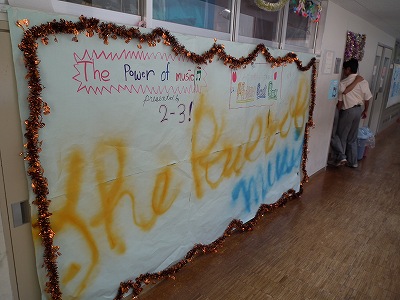 The Power of music
presented by
2-3!
The Power of
music